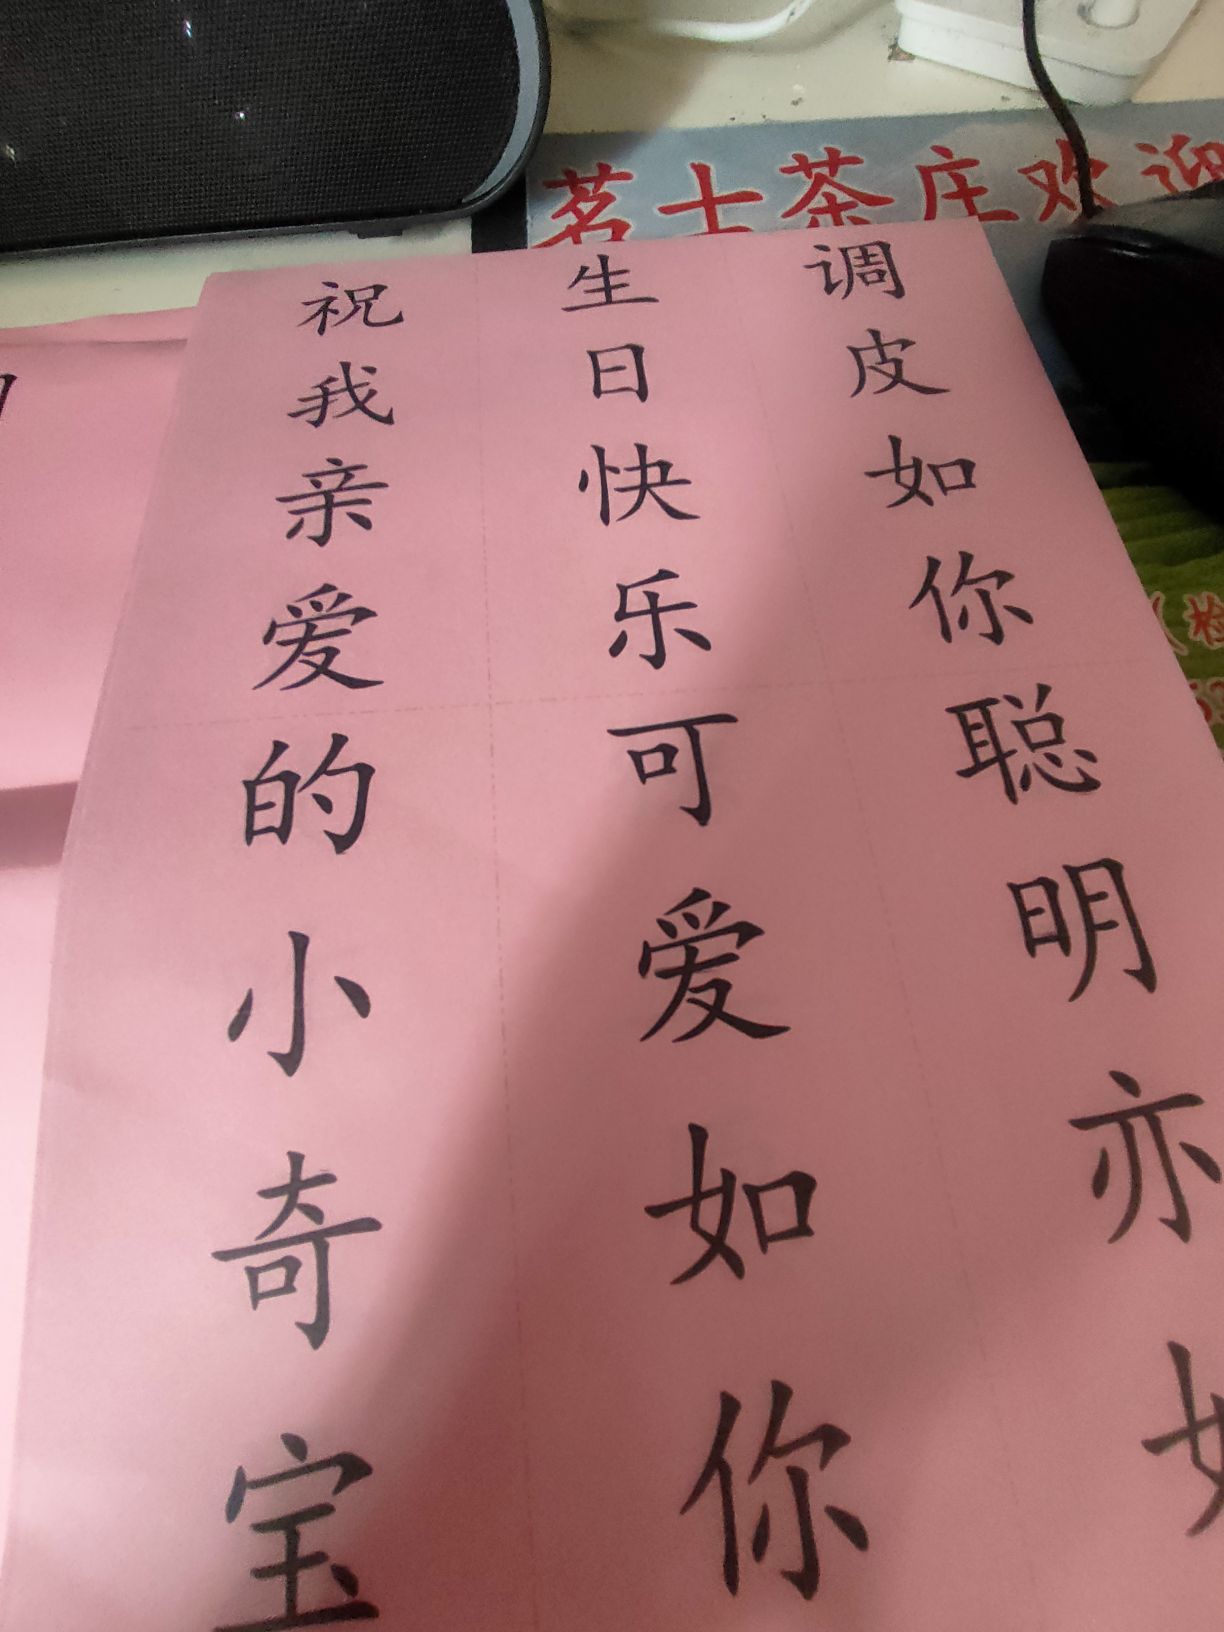 茗士茶庄欢迎
祝我亲爱的小奇宝
生日快乐可爱如你
调皮如你聪明亦